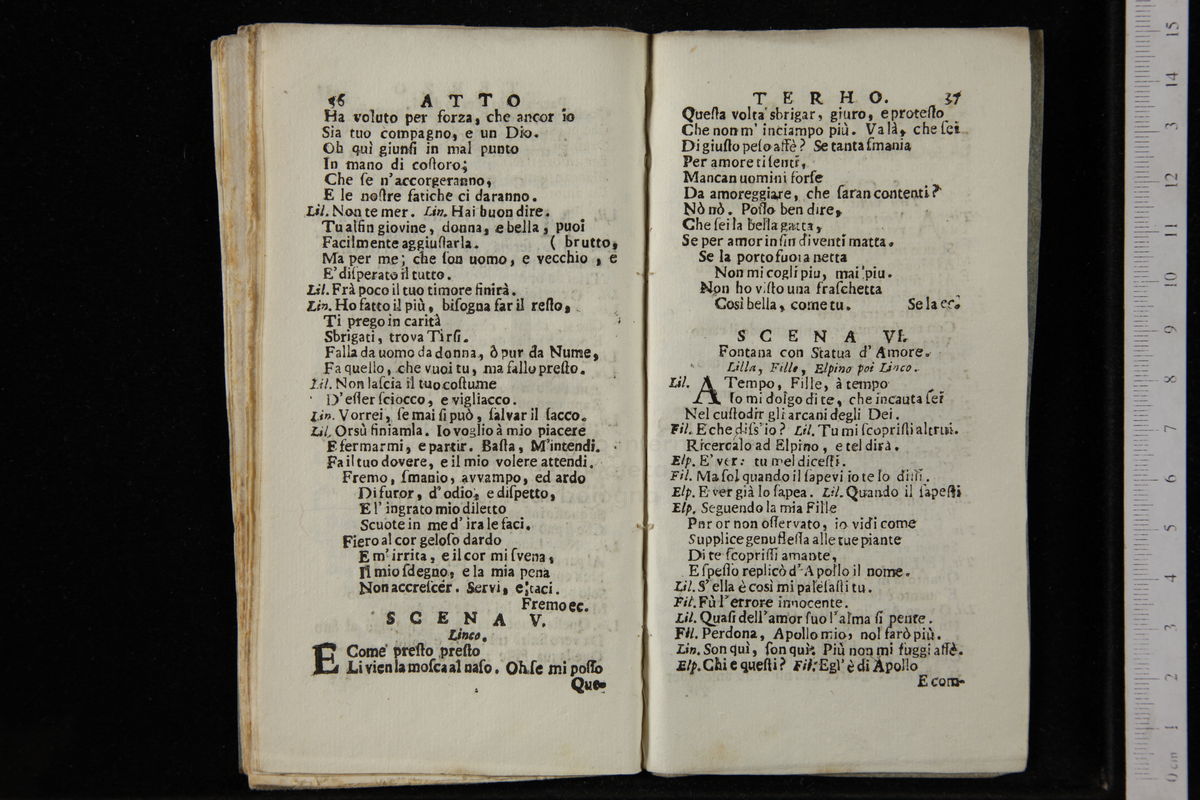 56 ATTO
Ha voluto per forza, che ancor io
Sia tuo compagno, e un Dio.
Oh quì giunſi in mal punto
In mano di coſtoro;
Che ſe n'accorgeranno,
E le noſtre fatiche ci daranno.
Lil. Non temer. Lin. Hai buon dire.
Tu alfin giovine, donna, e bella, puoi
Facilmente aggiuſtarla. ( brutto,
Ma per me; che ſon uomo, e vecchio, e
E' diſperato il tutto.
Lil. Frà poco il tuo timore finirà.
Lin. Ho fatto il più, biſogna far il reſto,
Ti prego in carità
Sbrigati, trova Tirſi.
Falla da uomo da donna, ò pur da Nume,
Fa quello, che vuoi tu, ma fallo preſto.
Lil. Non laſcia il tuo coſtume
D'eſſer ſciocco, e vigliacco.
Lin. Vorrei, ſe mai ſi può, ſalvar il ſacco.
Lil. Orsù finiamla. Io voglio à mio piacere
E fermarmi, e partir. Baſta, M'intendi.
Fa il tuo dovere, e il mio volere attendi.
Fremo, ſmanio, avvampo, ed ardo
Di furor, d'odio, e diſpetto,
E l' ingrato mio diletto
Scuote in me d' ira le faci.
Fiero al cor geloſo dardo
E m' irrita, e il cor mi ſvena,
Il mio ſdegno, e la mia pena
Non accreſcer. Servi, e taci.
Fremo ec.
SCENA V.
Linco.
E Come preſto preſto
Li vien la moſca al naſo. Oh ſe mi poſſo
Que-
TERHO. 37
Queſta volta sbrigar, giuro, e proteſto
Che non m' inciampo più. Va là, che ſei
Di giuſto peſo affè? Se tanta ſmania
Per amore ti ſenti,
Mancan uomini forſe
Da amoreggiare, che ſaran contenti?
Nò nò. Poſſo ben dire,
Che ſei la bella gatta,
Se per amor in fin diventi matta.
Se la porto fuora netta
Non mi cogli piu, mai piu.
Non ho viſto una fraſchetta
Così bella, come tu. Se la ec.
SCENA VI.
Fontana con Statua d' Amore.
Lilla, Fille, Elpino poi Linco.
Lil. A Tempo, Fille, à tempo
Io mi dolgo di te, che incauta ſei
Nel cuſtodir gli arcani degli Dei.
Fil. E che diſs' io? Lil. Tu mi ſcopriſti altrui.
Ricercalo ad Elpino, e tel dirà.
Elp. E' ver: tu mel diceſti.
Fil. Ma ſol quando il ſapevi io te lo diſſi.
Elp. E ver già lo ſapea. Lil. Quando il ſapeſti
Elp. Seguendo la mia Fille
Pur or non oſſervato, io vidi come
Supplice genufleſſa alle tue piante
Di te ſcopriſſi amante,
E ſpeſſo replicò d' Apollo il nome.
Lil. S' ella è così mi paleſaſti tu.
Fil. Fù l'errore innocente.
Lil. Quaſi dell'amor ſuo l'alma ſi pente.
Fil. Perdona, Apollo mio, nol farò più.
Lin. Son quì, ſon quì. Più non mi fuggi affè.
Elp. Chi e queſti? Fil. Egl' è di Apollo
E com-